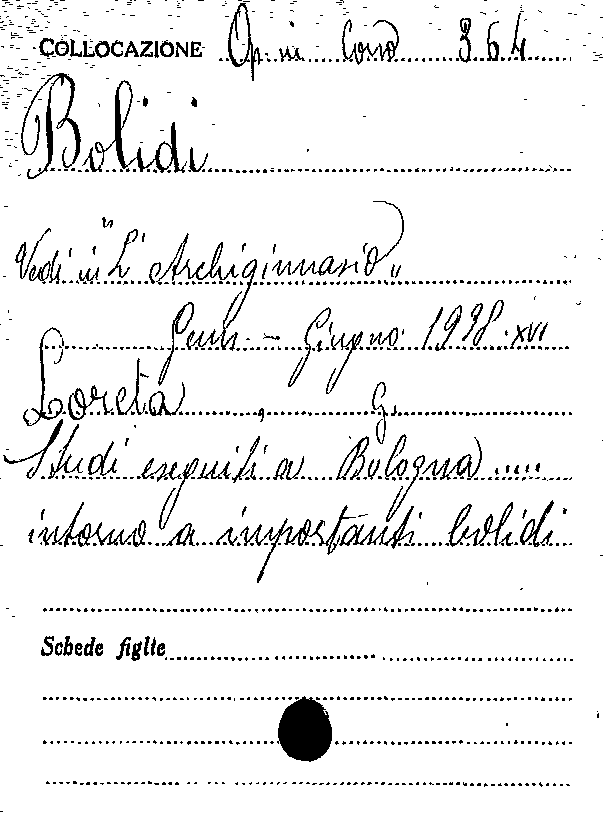 COLLOCAZIONE Op. in Corso 364
Bolidi
Vedi in "L'Archiginnasio„
Genn. - Giugno 1938. XVI
Loreta, G.
Studi eseguiti a Bologna .....
intorno a importanti bolidi
Schede figlie